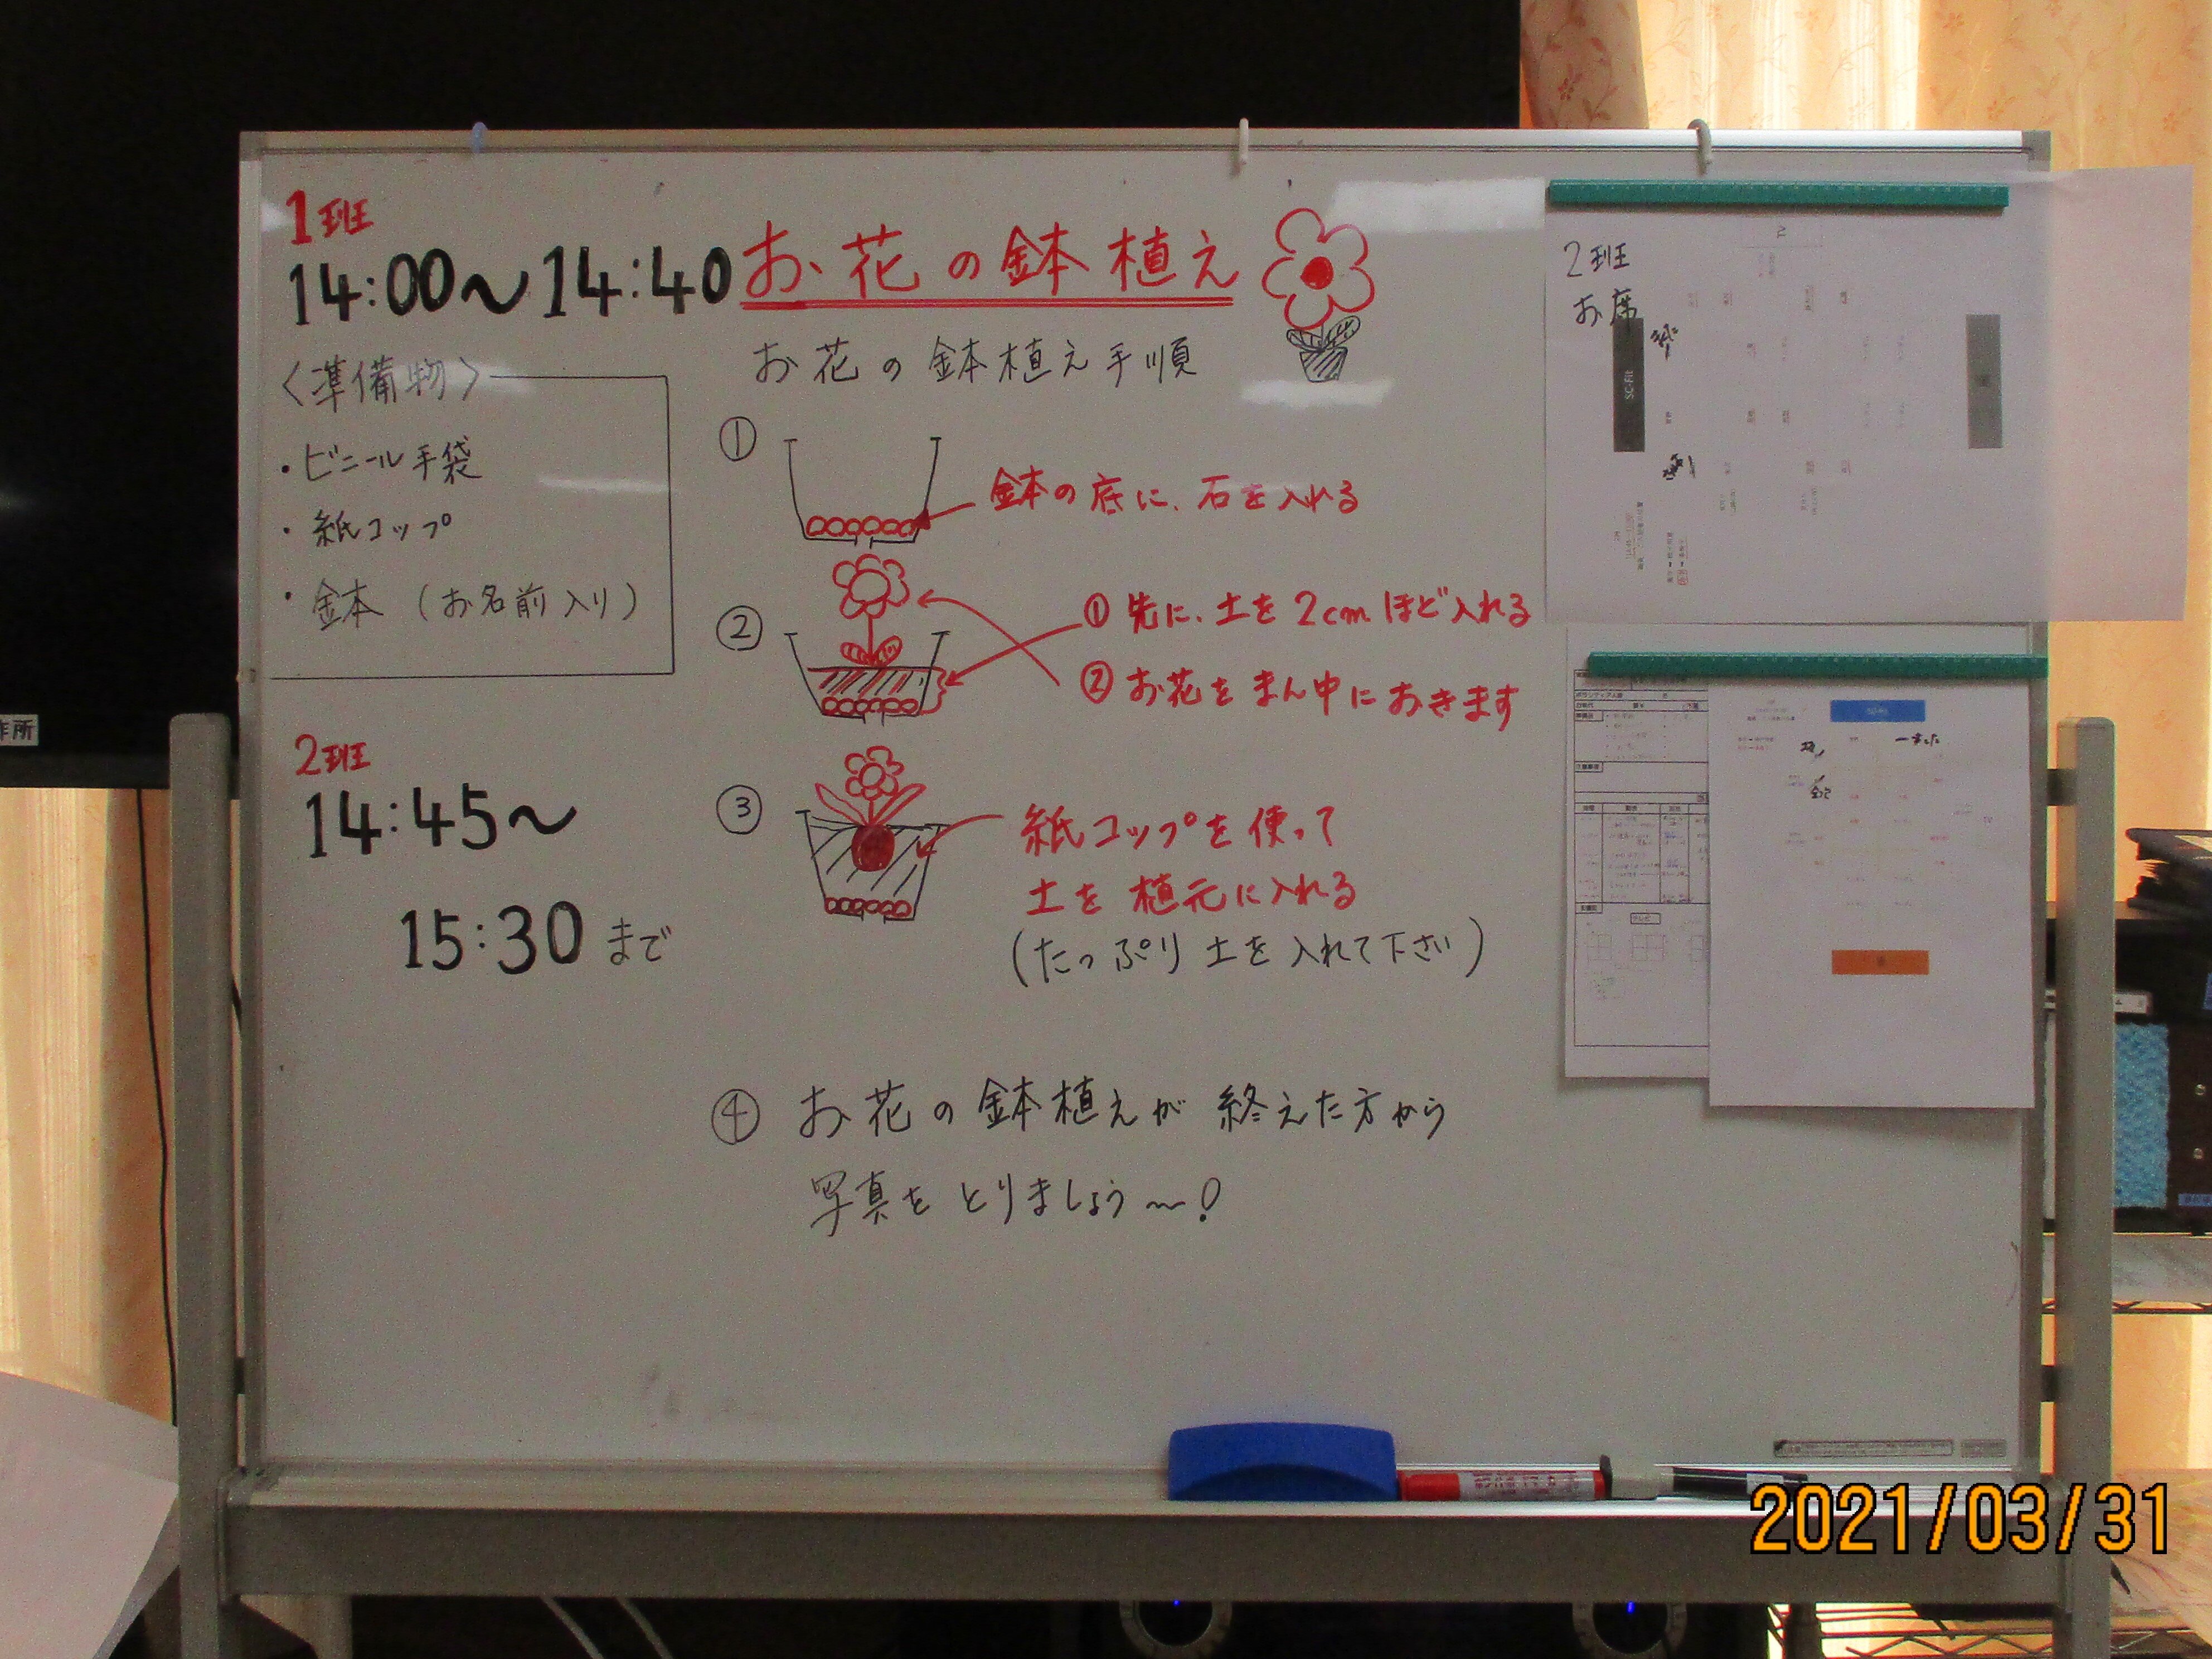 1班
14:00～14:40
お花の鉢植え
〈準備物〉
・ビニール手袋
・紙コップ
・鉢（お名前入り）
2班
14:45～
15:30まで
お花の鉢植え手順
①
鉢の底に、石を入れる
②
①先に、土を2cmほど入れる
②お花をまん中におきます
③
紙コップを使って
土を植元に入れる
（たっぷり土を入れて下さい）
④お花の鉢植えが終えた方から
写真をとりましょう～！
2班
お席
TV
SC-Fit
作所
2021/03/31